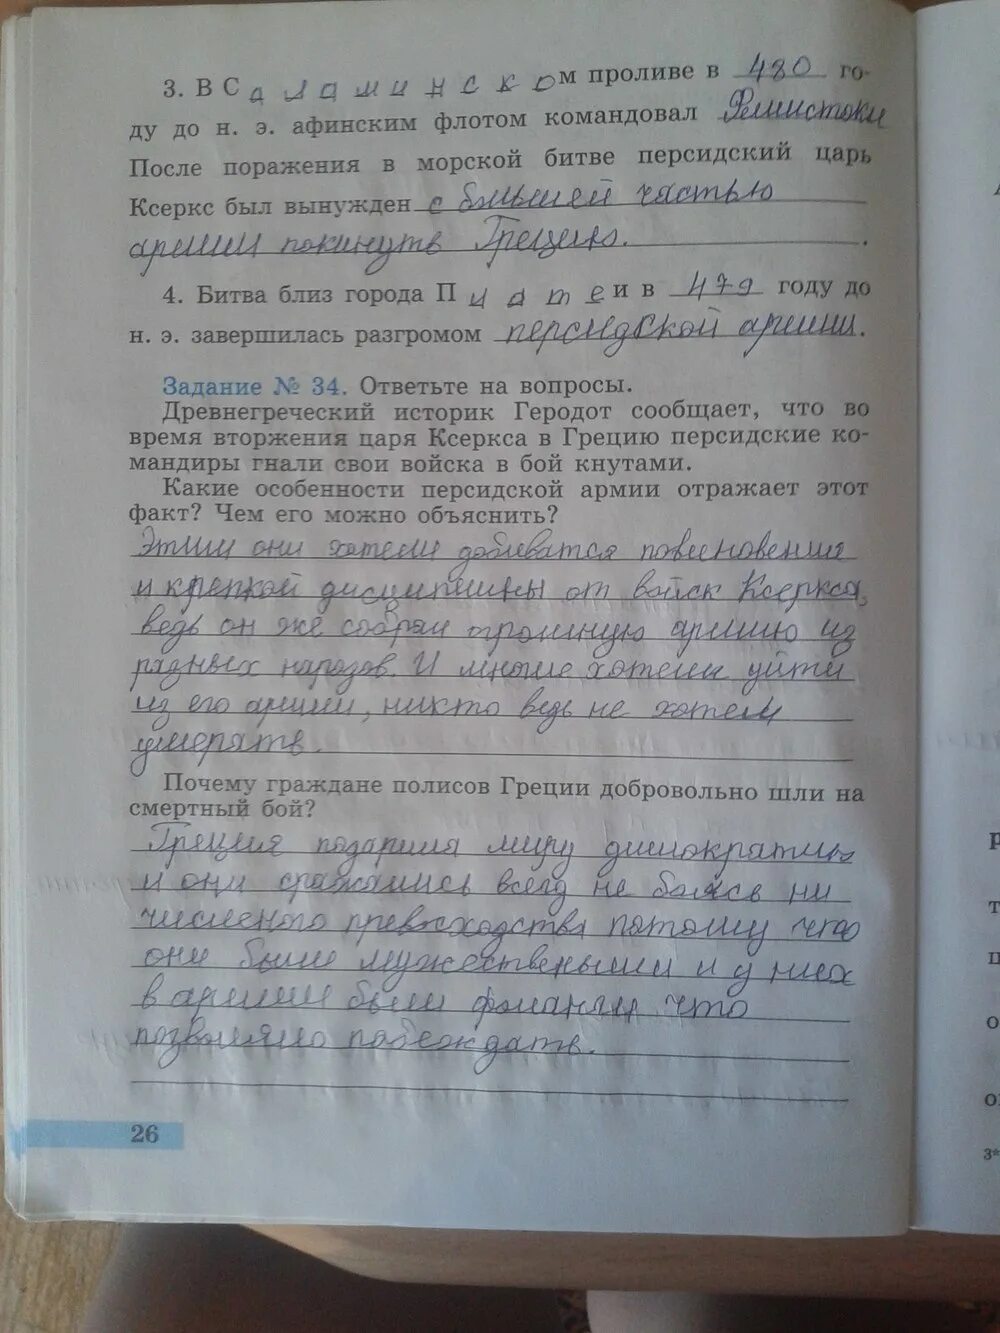 3. В Саламинском проливе в 480 го-
ду до н. э. афинским флотом командовал
После поражения в морской битве персидский царь
Ксеркс был вынужден с большей частью
армии покинуть Грецию.
4. Битва близ города П л а т е и в 479 году до
н. э. завершилась разгромом персидской армии.
Задание № 34. Ответьте на вопросы.
Древнегреческий историк Геродот сообщает, что во
время вторжения царя Ксеркса в Грецию персидские ко-
мандиры гнали свои войска в бой кнутами.
Какие особенности персидской армии отражает этот
факт? Чем его можно объяснить?
Этим они хотели добиватся повиновения
и крепкой дисциплины от войск Ксеркса,
ведь он же собрал огромную армию из
разных народов. И многие хотели уйти
из его армии, никто ведь не хотел
умерать.
Почему граждане полисов Греции добровольно шли на
смертный бой?
Греция подарила миру димократию
и они сражались всегд не боясь ни
численого превосходства потому что
они были мужествеными и у них
в армии были фаланги что
позволяло побеждать.
26
3*